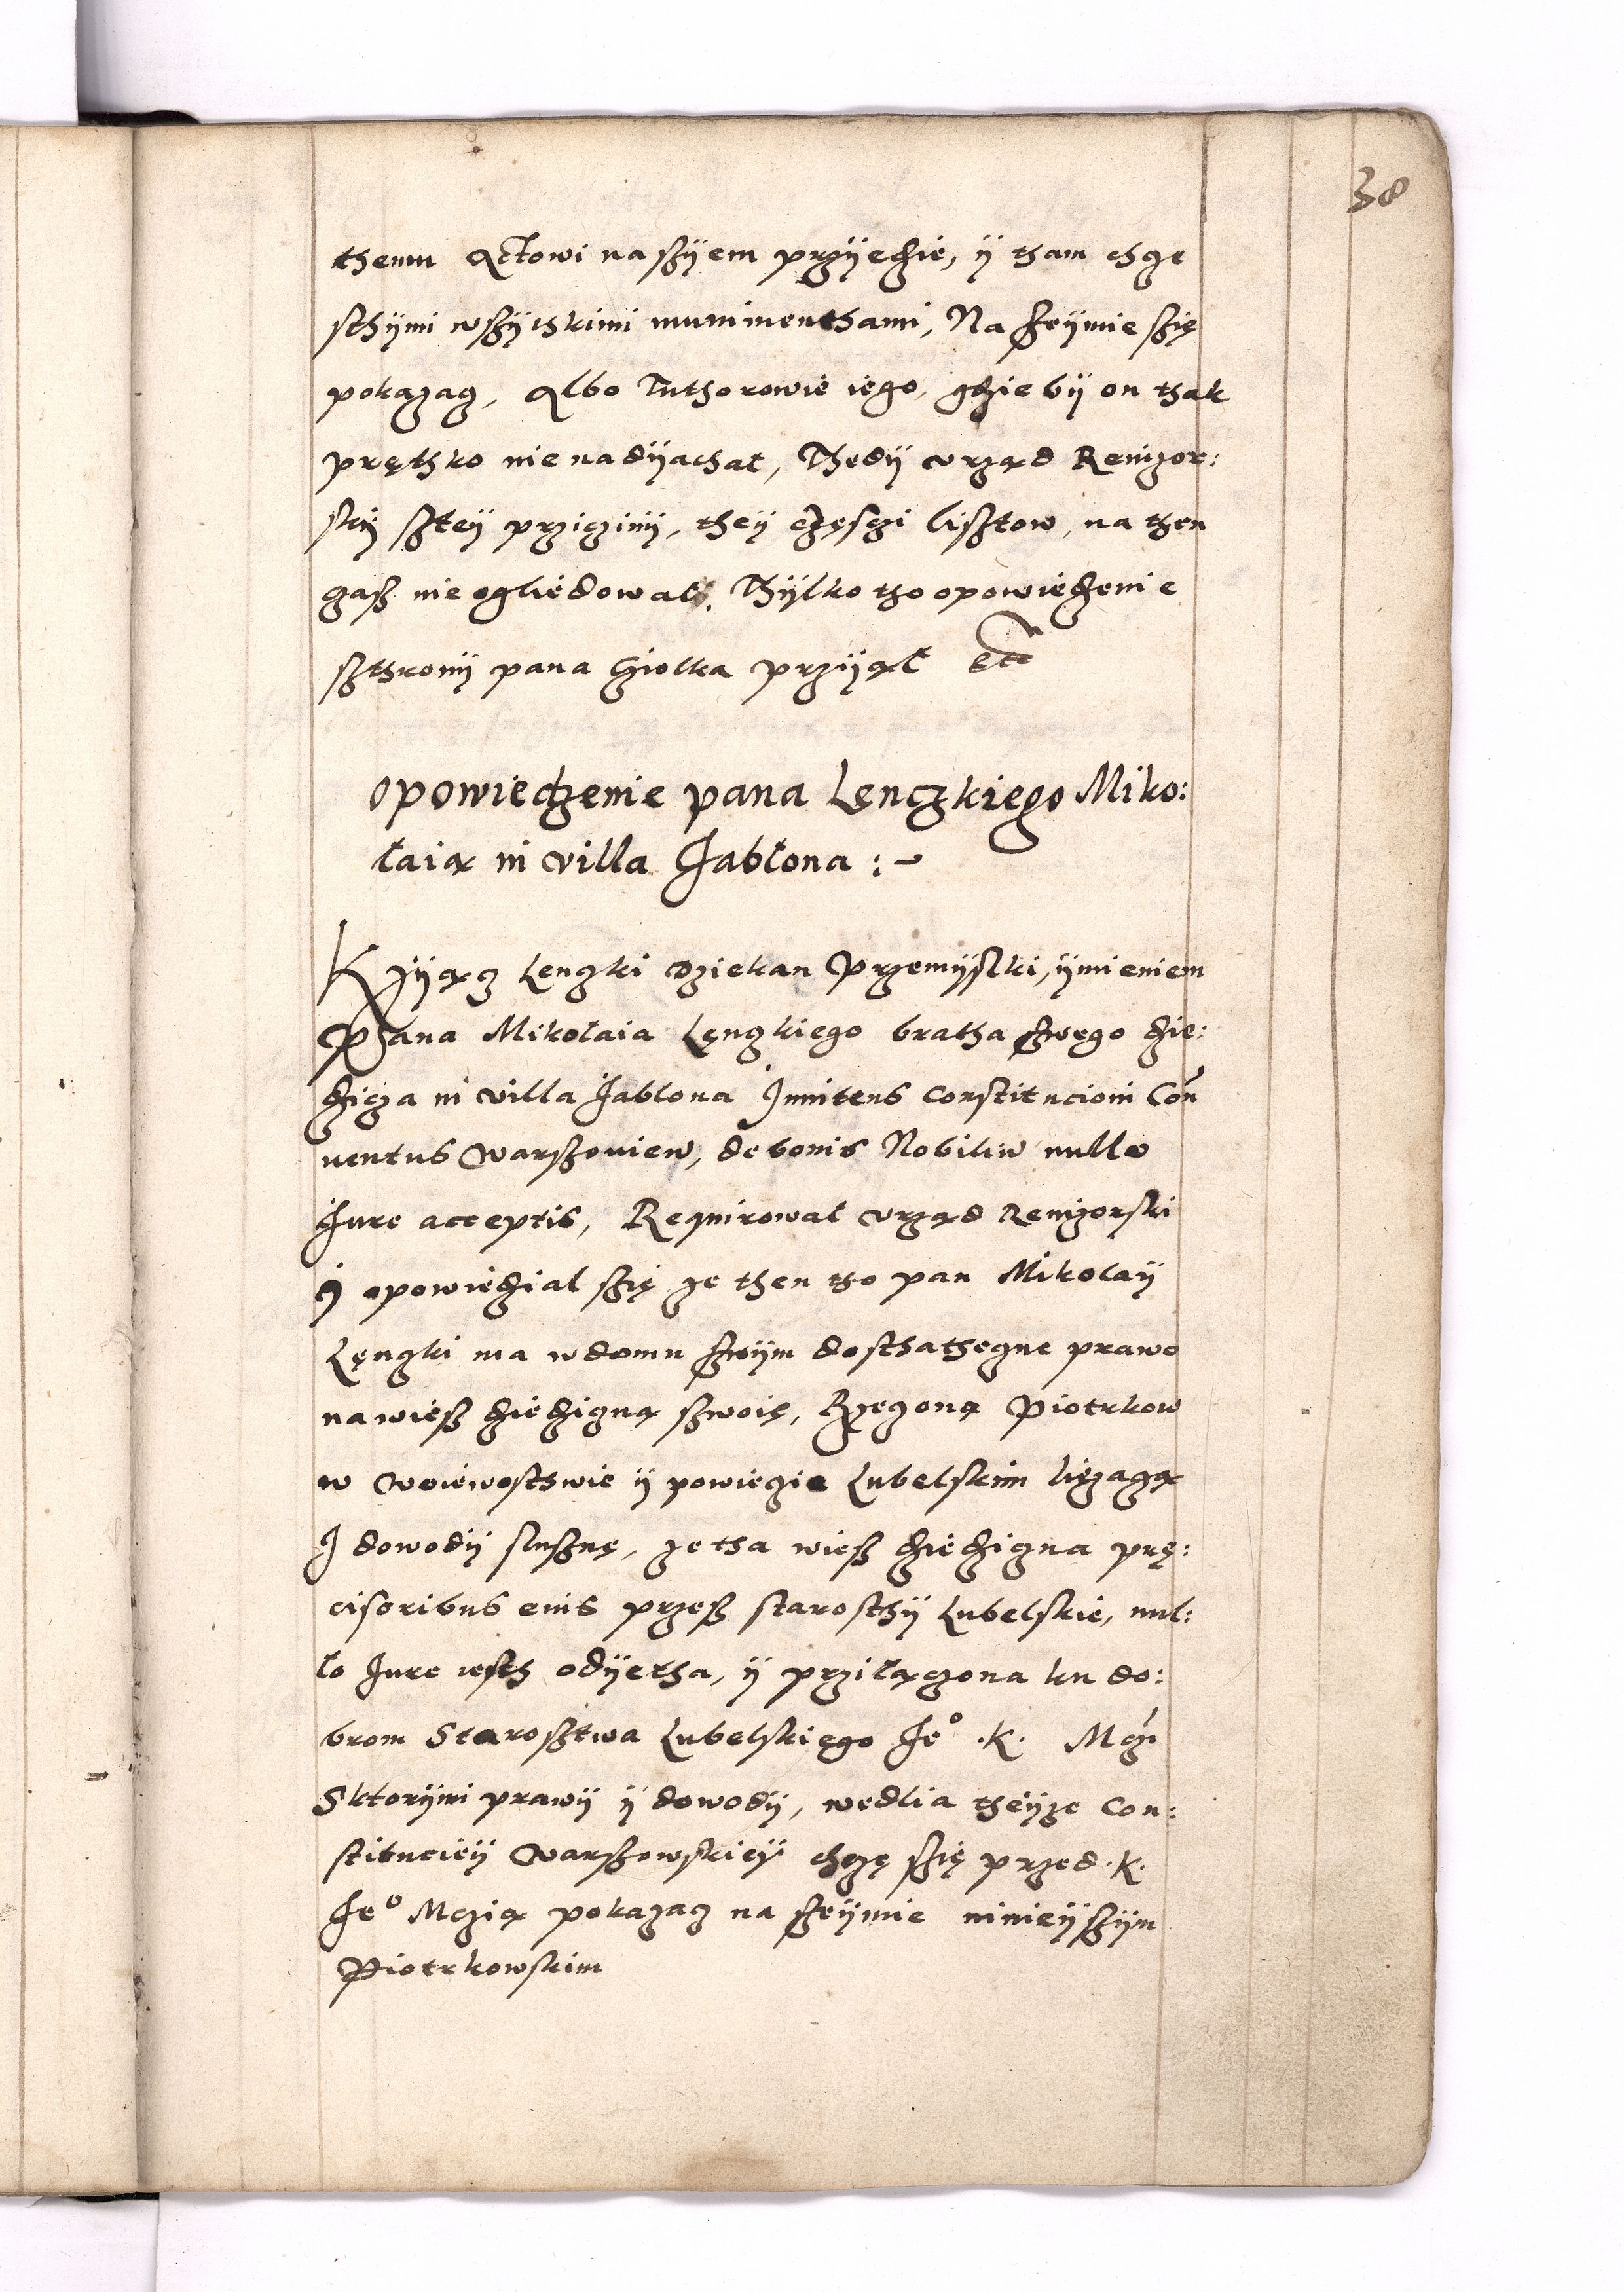 38
themu Actowi naszyem przyedzie, y tham chcze
sthymi wszythkimi munimenthami, Na szeymie szię
pokazacz, Albo Tuthorowie iego, gdzie by on thak
pręthko nie nadyachał, Thedy vrząd Rewizor:
sky sztey prziczini, they częsczi lisztow, na then
czasz nie ogliedował, Thylko tho opowiedzenie
szthrony pana Cziolka przyiął etc
opowiedzenie pana Lenczkiego Miko:
łaia in villa Jabłona :~
Kxyądz Lenczki dziekan Przemyslki, ymieniem
Pana Mikołaia Lęnczkiego bratha szwego dzie:
dzicza in villa Jablona Innitens Constitucioni Con
uentus Warszouien, de bonis Nobiliu nullo
Jure acceptis, Requirował vrząd Rewizorski
y opowiedzial szię ze then tho pan Mikolay
Lęnczki ma wdomu szwym dosthatheczne prawo
na wiesz dziedziczną szwoię, Rzeczoną Piotrkow
w woiewosthwie y powieczie Lubelskim liezączą
I dowody sluszne, ze tha wiesz dziedziczna prę:
cisoribus eius przesz starosthy Lubelskie, nul:
lo Jure iesth odyetha, y prziłączona ku do:
brom Starosztwa Lubelskiego Je° .K. Mczi
Sktorymi prawy y dowody, wedlia theyze Con:
stitucięy Warszowskiey chczę szię przed .K.
Je° Mczią pokazacz na szeymie ninieyszym
Piotrkowskim